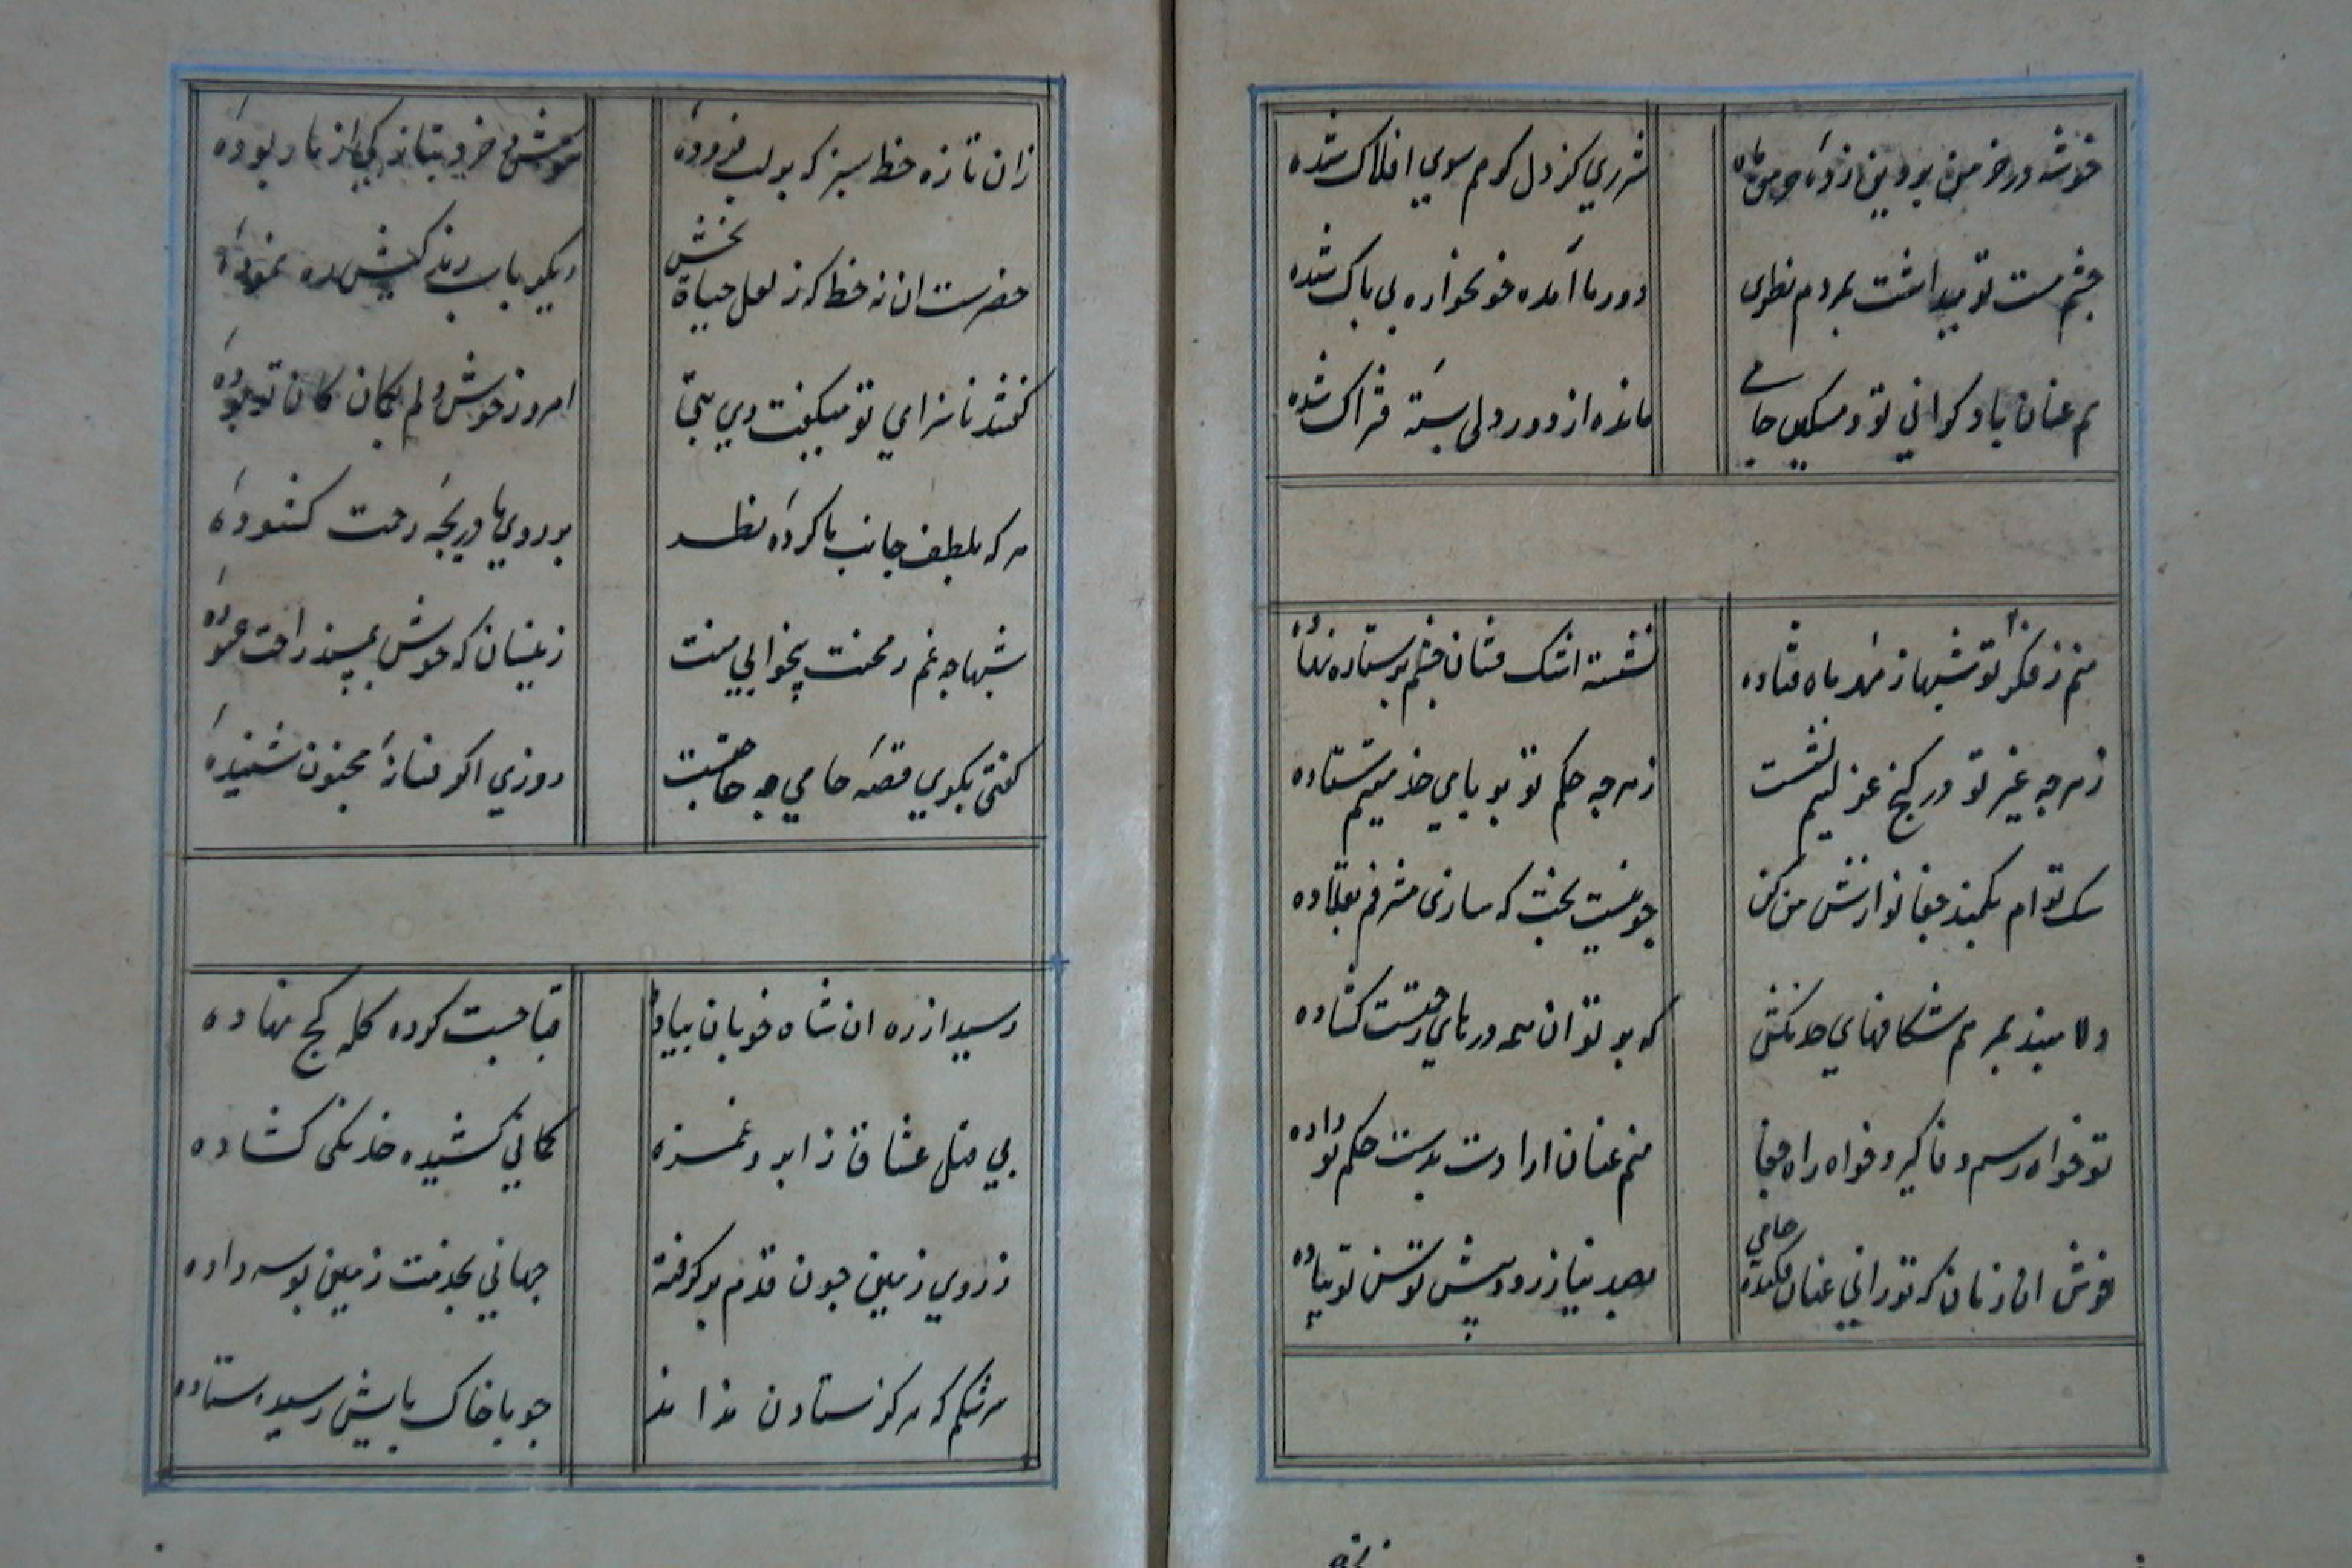 خوشه در خرمن پروین زده
شرری کز دل گرمم سوی افلاک شده
چشم مست تو میداشت بمردم نظری
دور ما آمده خونخواره بی باک شده
هم عنان با دگرانی تو و مسکین جامی
مانده از دور دلی بسته فتراک شده
منم ز فکر تو شبها ز مهد ماه فتاده
نشسته اشک فشان چشم بر ستاره نهاده
ز هر چه غیر تو در کنج عزلتیم نشست
ز هر چه حکم تو بر پای خدمتیم ستاده
سک توام بکمند جفا نوازش من کن
چو نیست بخت که سازی مشرفم بقلاده
دلا مبند بمرهم شکافهای خدنگش
که بر تو آن همه درهای رحمتست کشاده
تو خواه رسم وفا کیر و خواه راه جفا
منم عنان ارادت بدست حکم تو داده
خوش آن زمان که تو رانی عنان فکنده جامی
بصد نیاز رود پیش توسن تو پیاده
زان تازه خط سبز که بر لب فزوده
هوش و خرد
حضرست ان نه خط که ز لعل حیاة بخش
ره نموده
گفتند ناسزای تو میگفت دی
امروز خوش دلم بکمان کان تو بوده
هر که بلطف جانب ما کرده نظر
بر روی ما دریچه رحمت کشوده
شبها چه غم ز محنت بیخوابی منت
زینسان که خوش ببستر راحت غنوده
کفتی بکوی قصه جامی چه حاجتست
روزی اکر فسانه مجنون شنیده
رسید از ره ان شاه خوبان پیاده
قبا چست کرده کله کج نهاده
پی قتل عشاق از ابرو و غمزه
کمانی کشیده خدنکی کشاده
ز روی زمین چون قدم بر کرفته
جهانی بخدمت زمین بوسه داده
سرشکم که هر کز ستادن نداند
چو با خاک پایش رسید ستاده